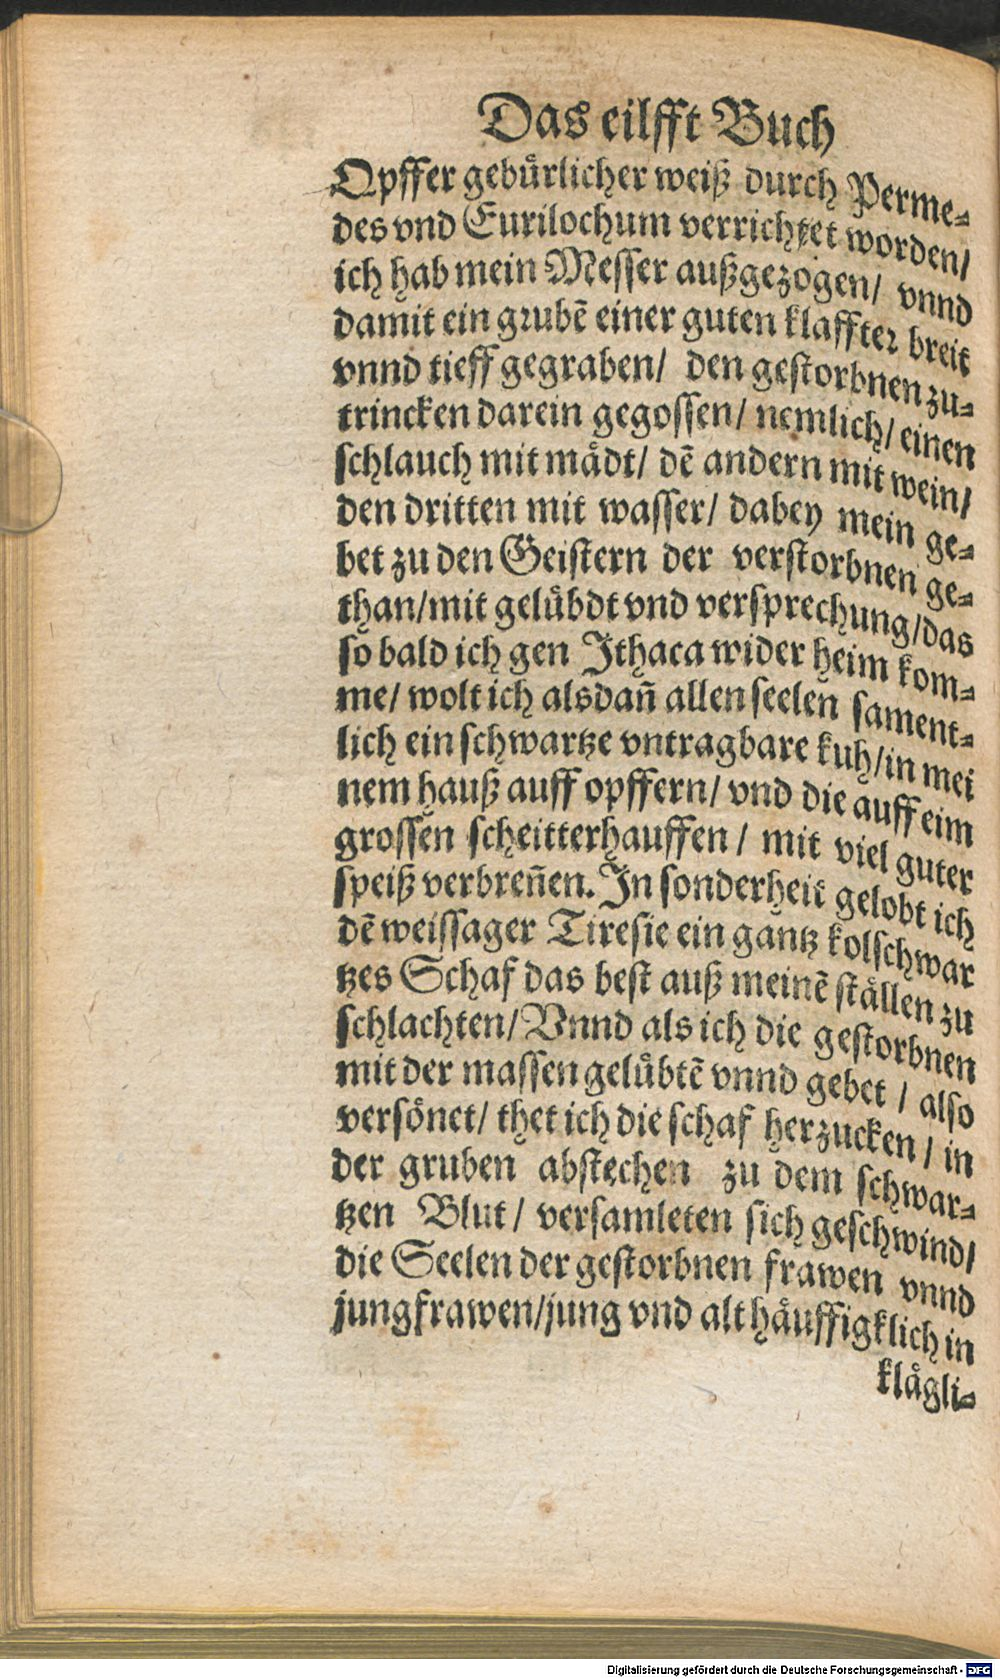 Das eilfft Buch
Opffer gebuͤrlicher weiß durch Perme⸗
des vnd Eurilochum verrichtet worden/
ich hab mein Messer außgezogen/ vnnd
damit ein grubē einer guten klaffter breit
vnnd tieff gegraben/ den gestorbnen zu⸗
trincken darein gegossen/ nemlich/ einen
schlauch mit maͤdt/ dē andern mit wein/
den dritten mit wasser/ dabey mein ge⸗
bet zu den Geistern der verstorbnen ge⸗
than/mit geluͤbdt vnd versprechung/das
so bald ich gen Ithaca wider heim kom⸗
me/ wolt ich alsdañ allen seelen sament⸗
lich ein schwartze vntragbare kuh/in mei
nem hauß auff opffern/ vnd die auff eim
grossen scheitterhauffen/ mit viel guter
speiß verbreñen. In sonderheit gelobt ich
dē weissager Tiresie ein gantz kolschwar
tzes Schaf das best auß meinē staͤllen zu
schlachten/ Vnnd als ich die gestorbnen
mit der massen geluͤbtē vnnd gebet / also
versoͤnet/ thet ich die schaf herzucken / in
der gruben abstechen zu dem schwar⸗
tzen Blut/ versamleten sich geschwind/
die Seelen der gestorbnen frawen vnnd
jungfrawen/jung vnd alt haͤuffigklich in
klaͤgli⸗
Digitalisierung gefördert durch die Deutsche Forschungsgemeinschaft - DFG